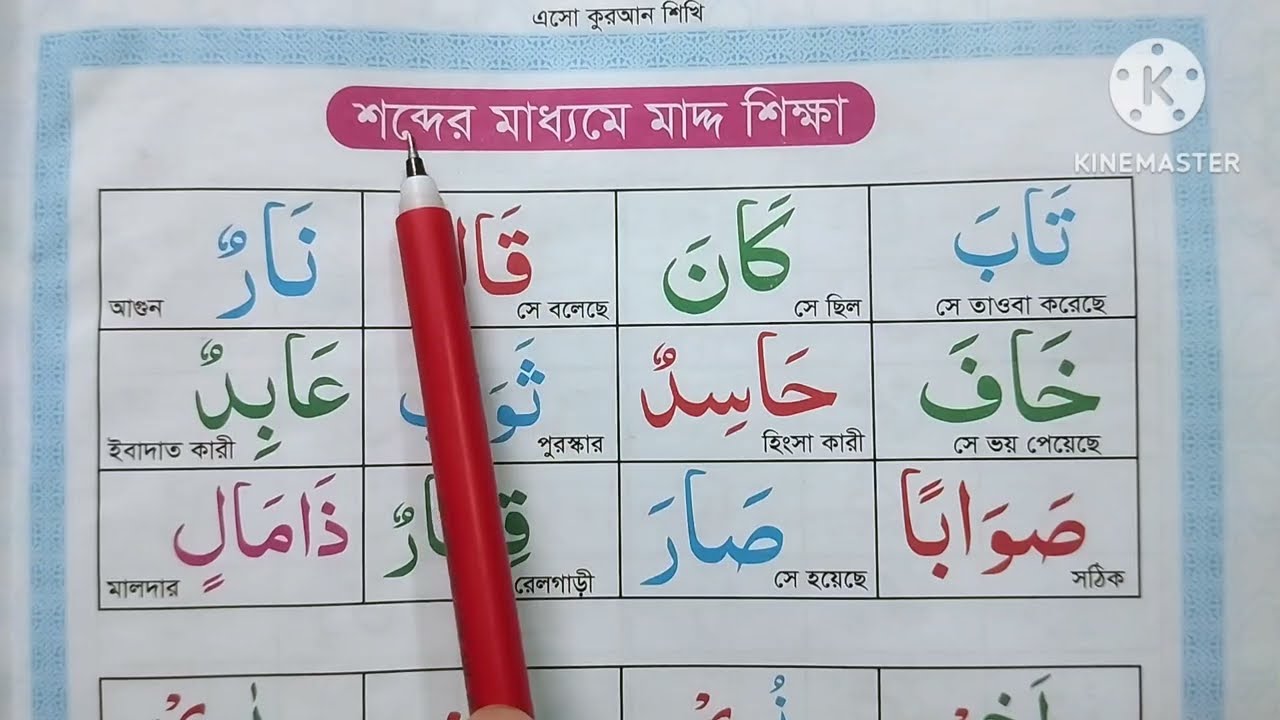 এসো কুরআন শিখি
শব্দের মাধ্যমে মাদ্দ শিক্ষা
KINEMASTER
تَابَ كَانَ نَارٌ
সে তাওবা করেছে সে ছিল সে বলেছে আগুন
خَافَ حَاسِدٌ عَابِدٌ
সে ভয় পেয়েছে হিংসা কারী পুরস্কার ইবাদাত কারী
صَوَابًا صَارَ ذَامَالٍ
সঠিক সে হয়েছে রেলগাড়ী মালদার